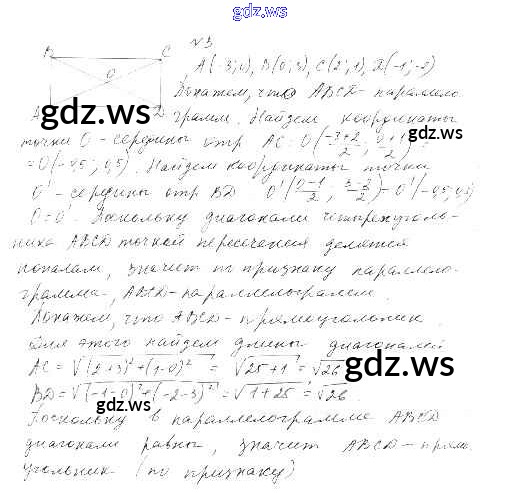 gdz.ws
№3
B C
A(-3;0), B(0;3), C(2;1), D(-1;-2)
O
Докажем, что ABCD - паралле­ло-
A D
грамм. Найдем координаты
gdz.ws
gdz.ws
точки O - середины отр AC: O(-3+2/2; 0+1/2) =
= O(-0,5; 0,5). Найдем координаты точки
O' - середины отр BD O'(0-1/2; 3-2/2) = O'(-0,5; 0,5)
O = O'. Поскольку диагонали четырехуголь-
ника ABCD точкой пересечения делятся
пополам, значит по признаку паралле­ло-
грамма, ABCD - параллелограмм.
Докажем, что ABCD - прямоугольник.
Для этого найдем длины диагоналей
AC = √(2+3)²+(1-0)² = √25+1 = √26
gdz.ws
BD = √(-1-0)²+(-2-3)² = √1+25 = √26.
gdz.ws
Поскольку в параллелограмме ABCD
диагонали равны, значит ABCD - прямо-
угольник (по признаку)
gdz.ws